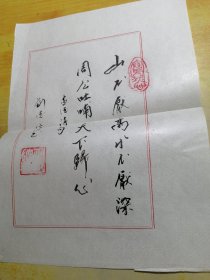 山不厭高水不厭深
周公吐哺天下歸心
孟德詩
劉